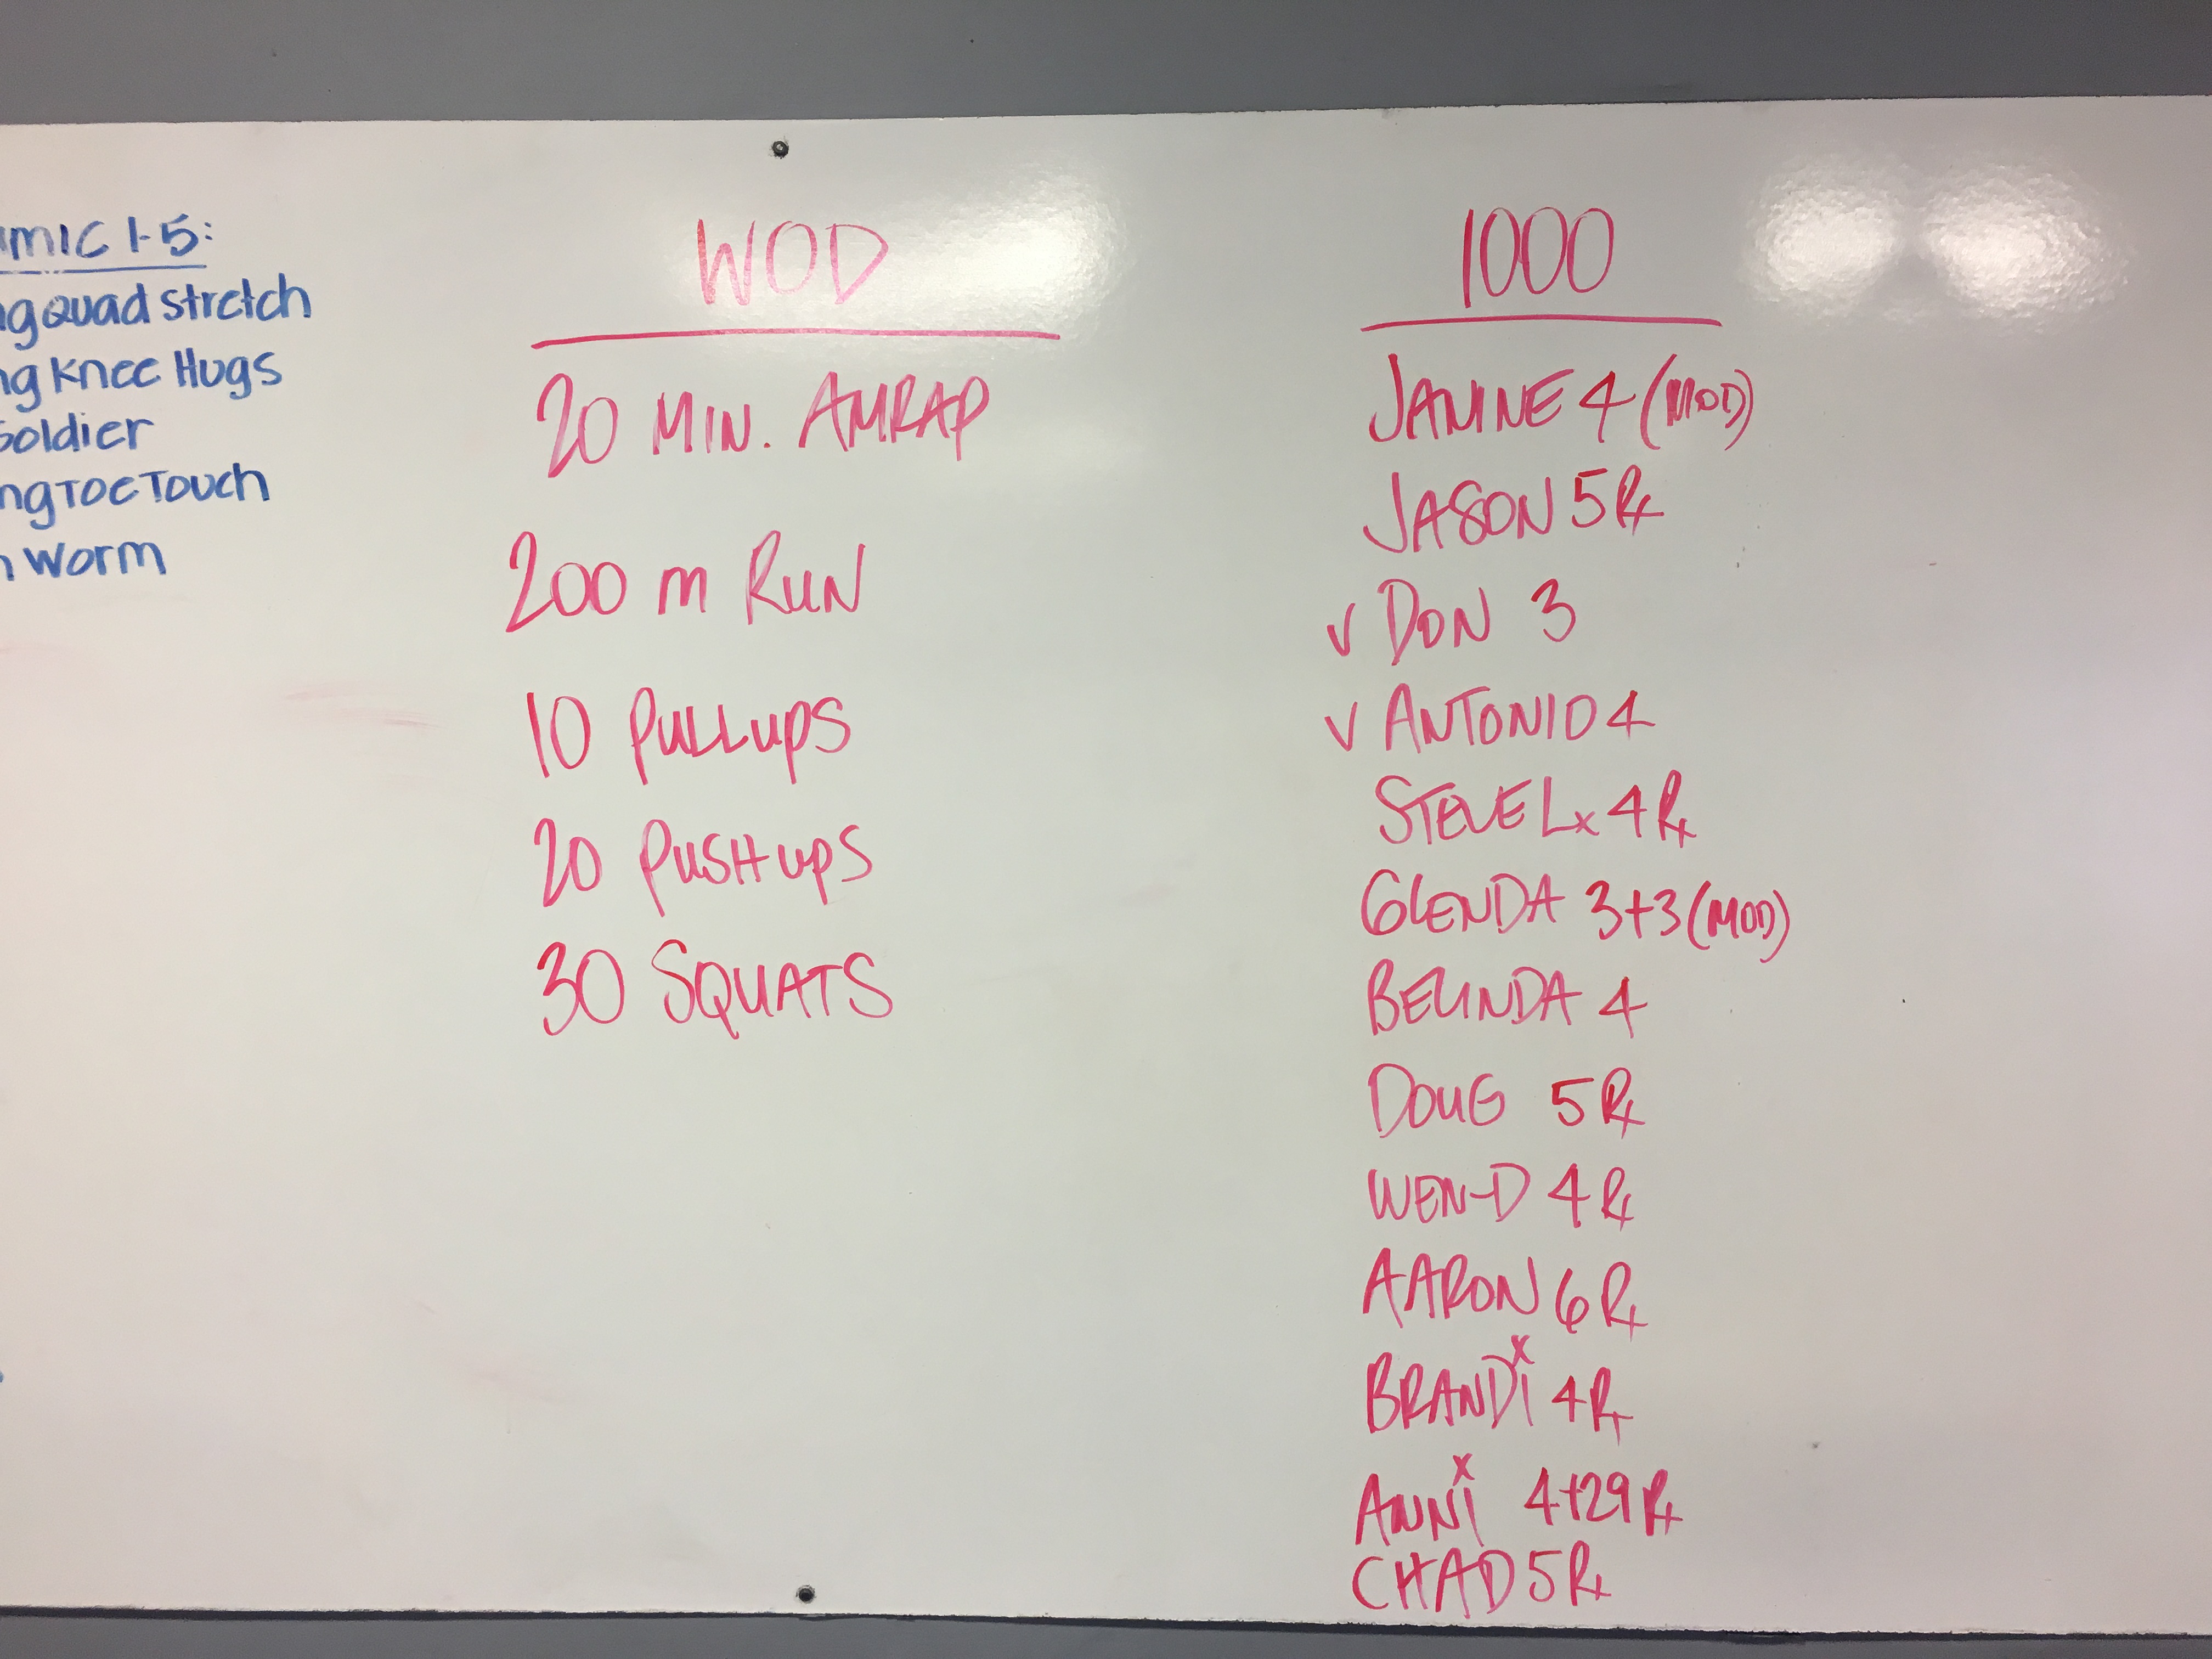 mic 1-5:
g Quad Stretch
ng Knee Hugs
Soldier
ng Toe Touch
Worm
WOD
20 MIN. AMRAP
200 m RUN
10 PULLUPS
20 PUSHUPS
30 SQUATS
1000
JANINE 4 (MOD)
JASON 5 Rx
✓ DON 3
✓ ANTONIO 4
STEVE L x 4 Rx
GLENDA 3+3 (MOD)
BELINDA 4
DOUG 5 Rx
WEN-D 4 Rx
AARON 6 Rx
BRANDI x 4 Rx
ANNI x 4+29 Rx
CHAD 5 Rx